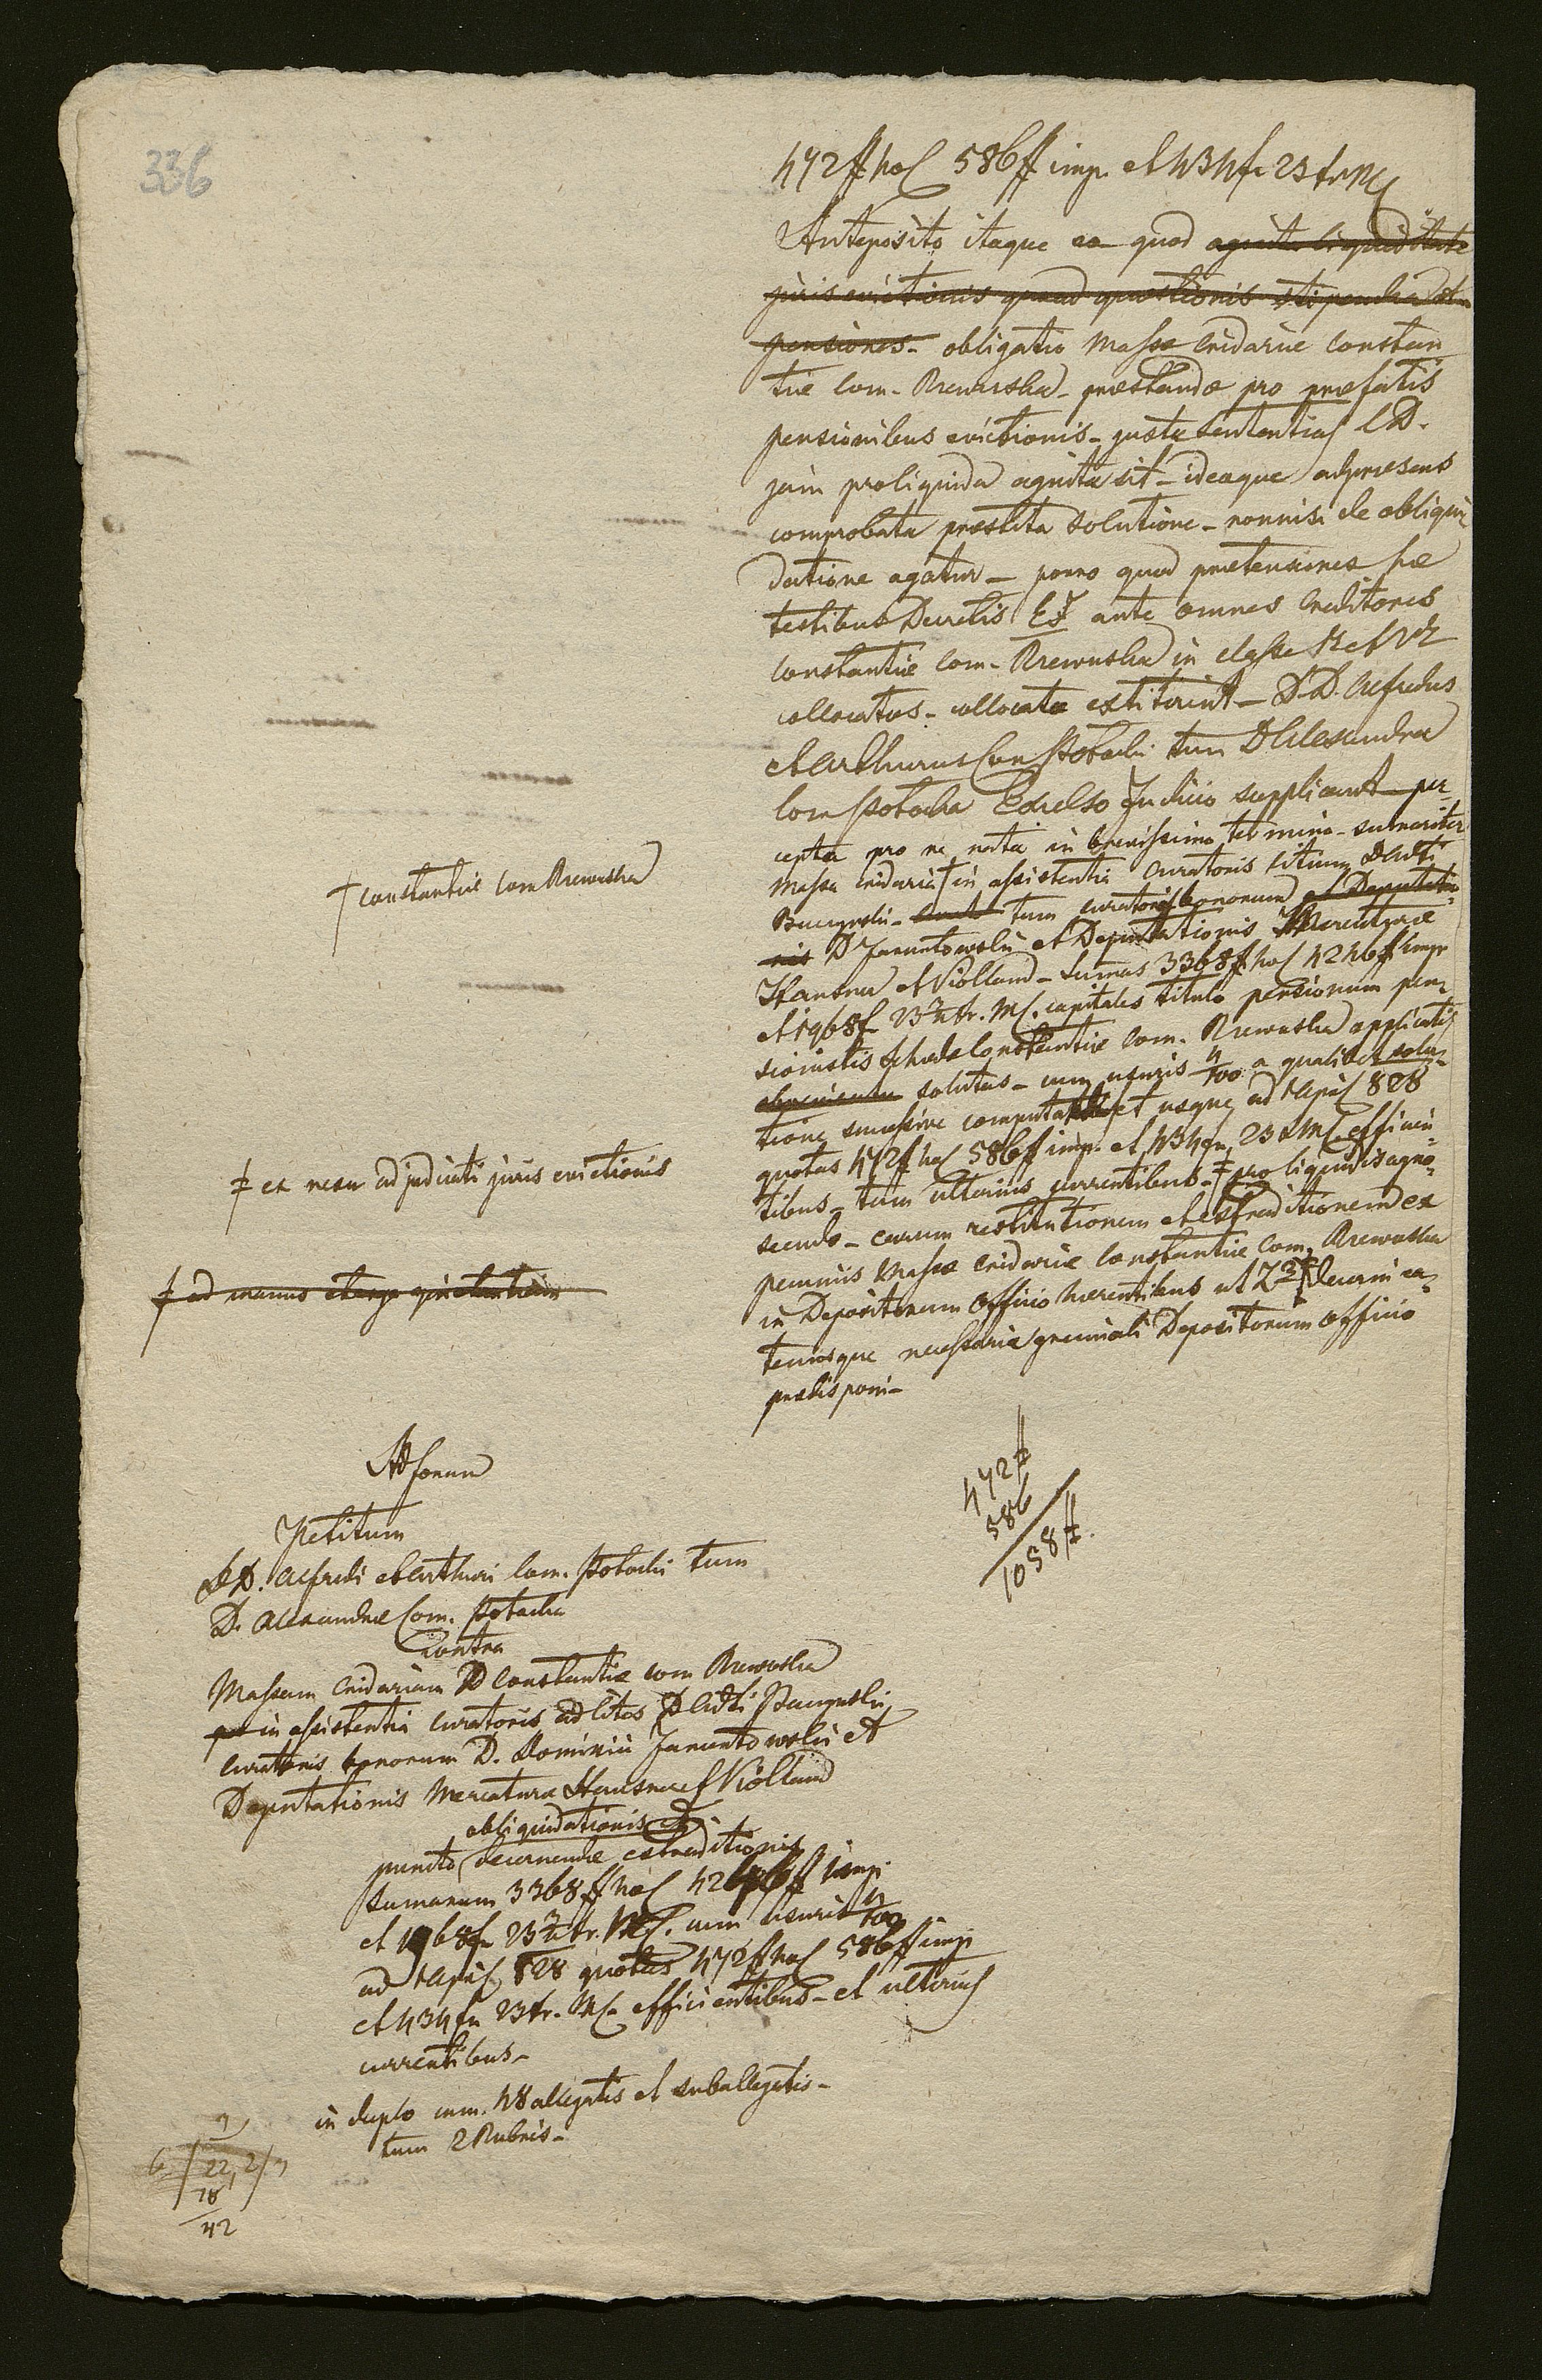 336
472 # hol 586 # imp. et 434 fr 23 xr MC
Anteposito itaque eo quod agnita liquiditate
juris evictionis quoad quaestionis stipendia et
pensiones - obligatio Massae Cridariae Constan
tiae Com. Rzewuska - praestandae pro praefatis
pensionibus evictionis - juxta Sententias CD.
jam pro liquida agnita sit - ideoque ad praesens
comprobata praestita solutione - nonnisi de obliqui
datione agatur - porro quod praetensiones hae
testibus Decretis EJ ante omnes Creditores
Constantiae Com. Rzewuska in classe et
collocatos - collocatae extiterint - D.D. Alfredus
et Arthurus Com Potocki tum D Alexandra
Com Potocka Excelso Judicio supplicant per
cepta pro re nata in brevissimo termino - sumariter
Massa Cridaria † in assistentia Curatoris litium D Adti
† Constantiae Com Rzewuska
tum curatoris bonorum et Deputatio
nis D Jaruntowski et Deputationis Mercaturae
Hausner et Violland - Sumas 3368 # hol 4246 # imp
et 1968 f 23 2/4 xr. MC. capitales titulo pensionum pen
sionistis Constantiae Com. Rzewuska applicatis
solutas - cum usuris 4/100 a qualibet solu
tione successive computandis et usque ad 828
quotas 472 # hol 586 # imp. et 434 fr 23 x MC. efficien
tibus - tum ulterius currentibus - ‡ pro liquidis agno
‡ ex nexu adjudicati juris evictionis
scendo - earum restitutionem et extraditionem ex
pecuniis Massae Cridariae Constantiae Com. Rzewuska
in Depositorum Officio haerentibus ‡ decerni ea
‡ ad manus et erga quietantiam
temusque necessaria gremiali Depositorum Officio
praedisponi -
472 #
586
1058 #.
Ad forum
Petitum
D.D. Alfredi et Arthuri Com. Potocki tum
D. Alexandrae Com. Potocka
Contra
Massam Cridariam D Constantiae Com Rzewuska
in assistentia Curatoris ad lites D Adti
Curatoris bonorum D. Dominici Jaruntowski et
Deputationis Mercaturae Hausner et Violland
obliquidationis et
puncto decernendae extraditionis
Sumarum 3368 # hol 4246 # imp.
et 1968 f 23 2/4 xr. MC. cum usuris 4/100
ad 828 quotas 472 # hol 586 # imp
et 434 fr 23 xr. MC efficientibus - et ulterius
currentibus -
in duplo cum. 48 allegatis et suballegatis -
tum 2 Rubris -
6 / 22,2 /
18
42